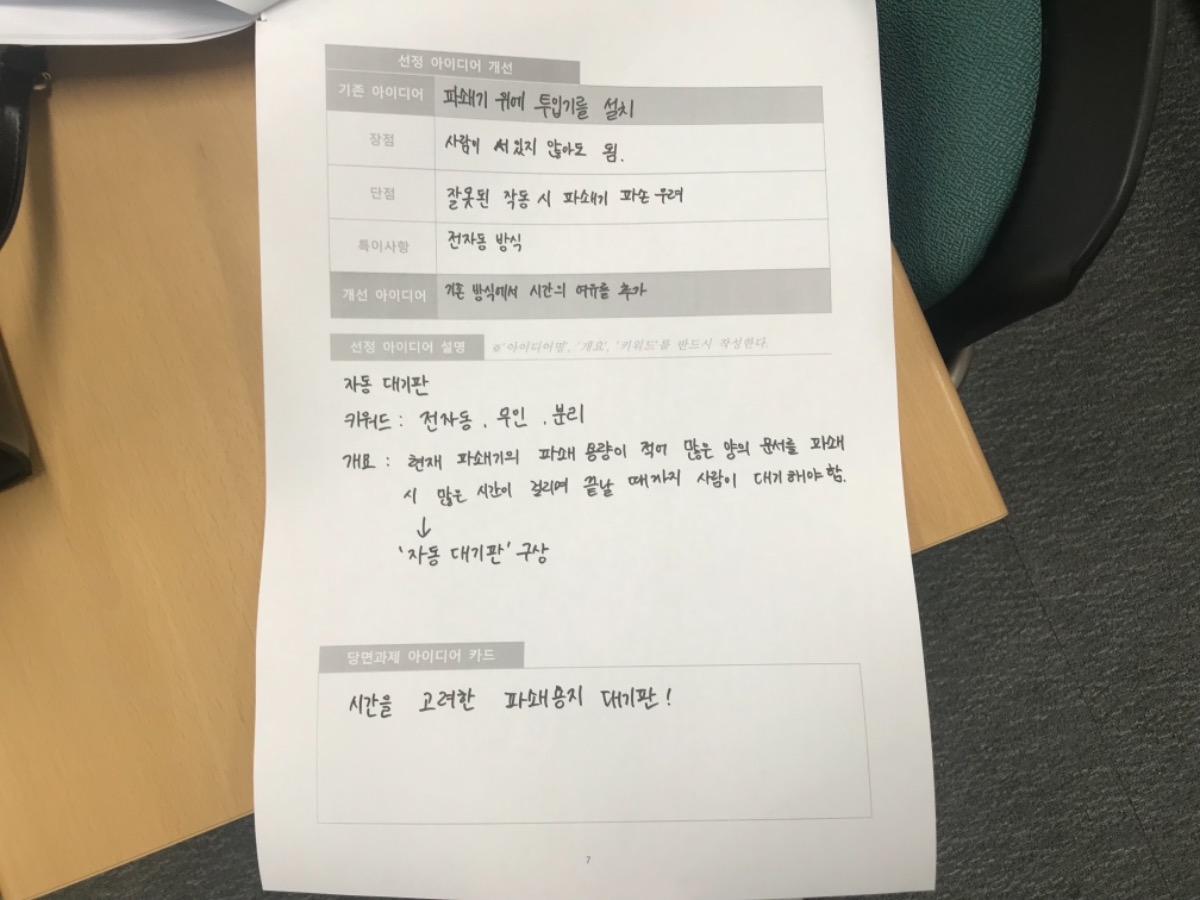 선정 아이디어 개선
기존 아이디어 파쇄기 위에 투입기를 설치
장점 사람이 서있지 않아도 됨.
단점 잘못된 작동 시 파쇄기 파손 우려
특이사항 전자동 방식
개선 아이디어 기존 방식에서 시간의 여유를 추가
선정 아이디어 설명 ※'아이디어명', '개요', '키워드'를 반드시 작성한다.
자동 대기판
키워드 : 전자동, 무인, 분리
개요 : 현재 파쇄기의 파쇄 용량이 적어 많은 양의 문서를 파쇄
시 많은 시간이 걸리며 끝날 때까지 사람이 대기해야함.
↓
'자동 대기판' 구상
당면과제 아이디어 카드
시간을 고려한 파쇄용지 대기판!
7